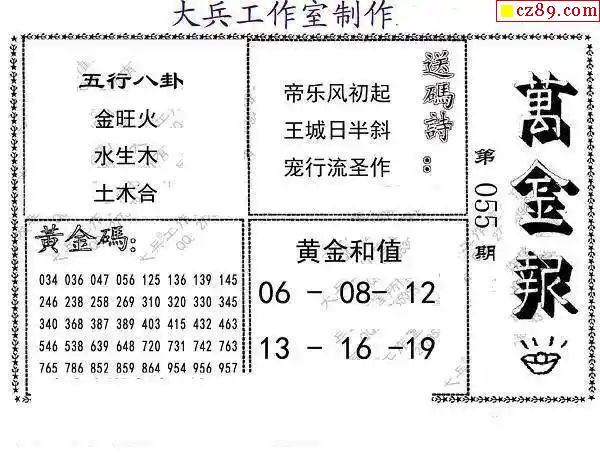 大兵工作室制作
cz89.com
五行八卦
金旺火
水生木
土木合
送碼詩：
帝乐风初起
王城日半斜
宠行流圣作
萬金報
第055期
黄金碼：
034 036 047 056 125 136 139 145
246 238 258 269 310 320 330 345
340 368 387 389 403 415 432 463
546 538 639 648 720 731 742 763
765 786 852 859 864 954 956 957
黄金和值
06 - 08- 12
13 - 16 -19